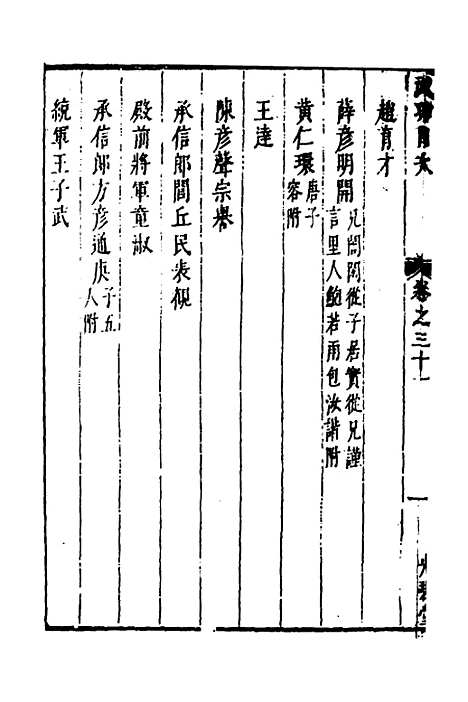 卷之三十一
趙育才
薛彦明開兄誾閎從子居實從兄謹言里人鮑若雨包汝諧附
黄仁環唐子容附
王逵
陳彦聲宗譽
承信郎閭丘民表覬
殿前將軍童淑
承信郎方彦通庚子五人附
統軍王子武